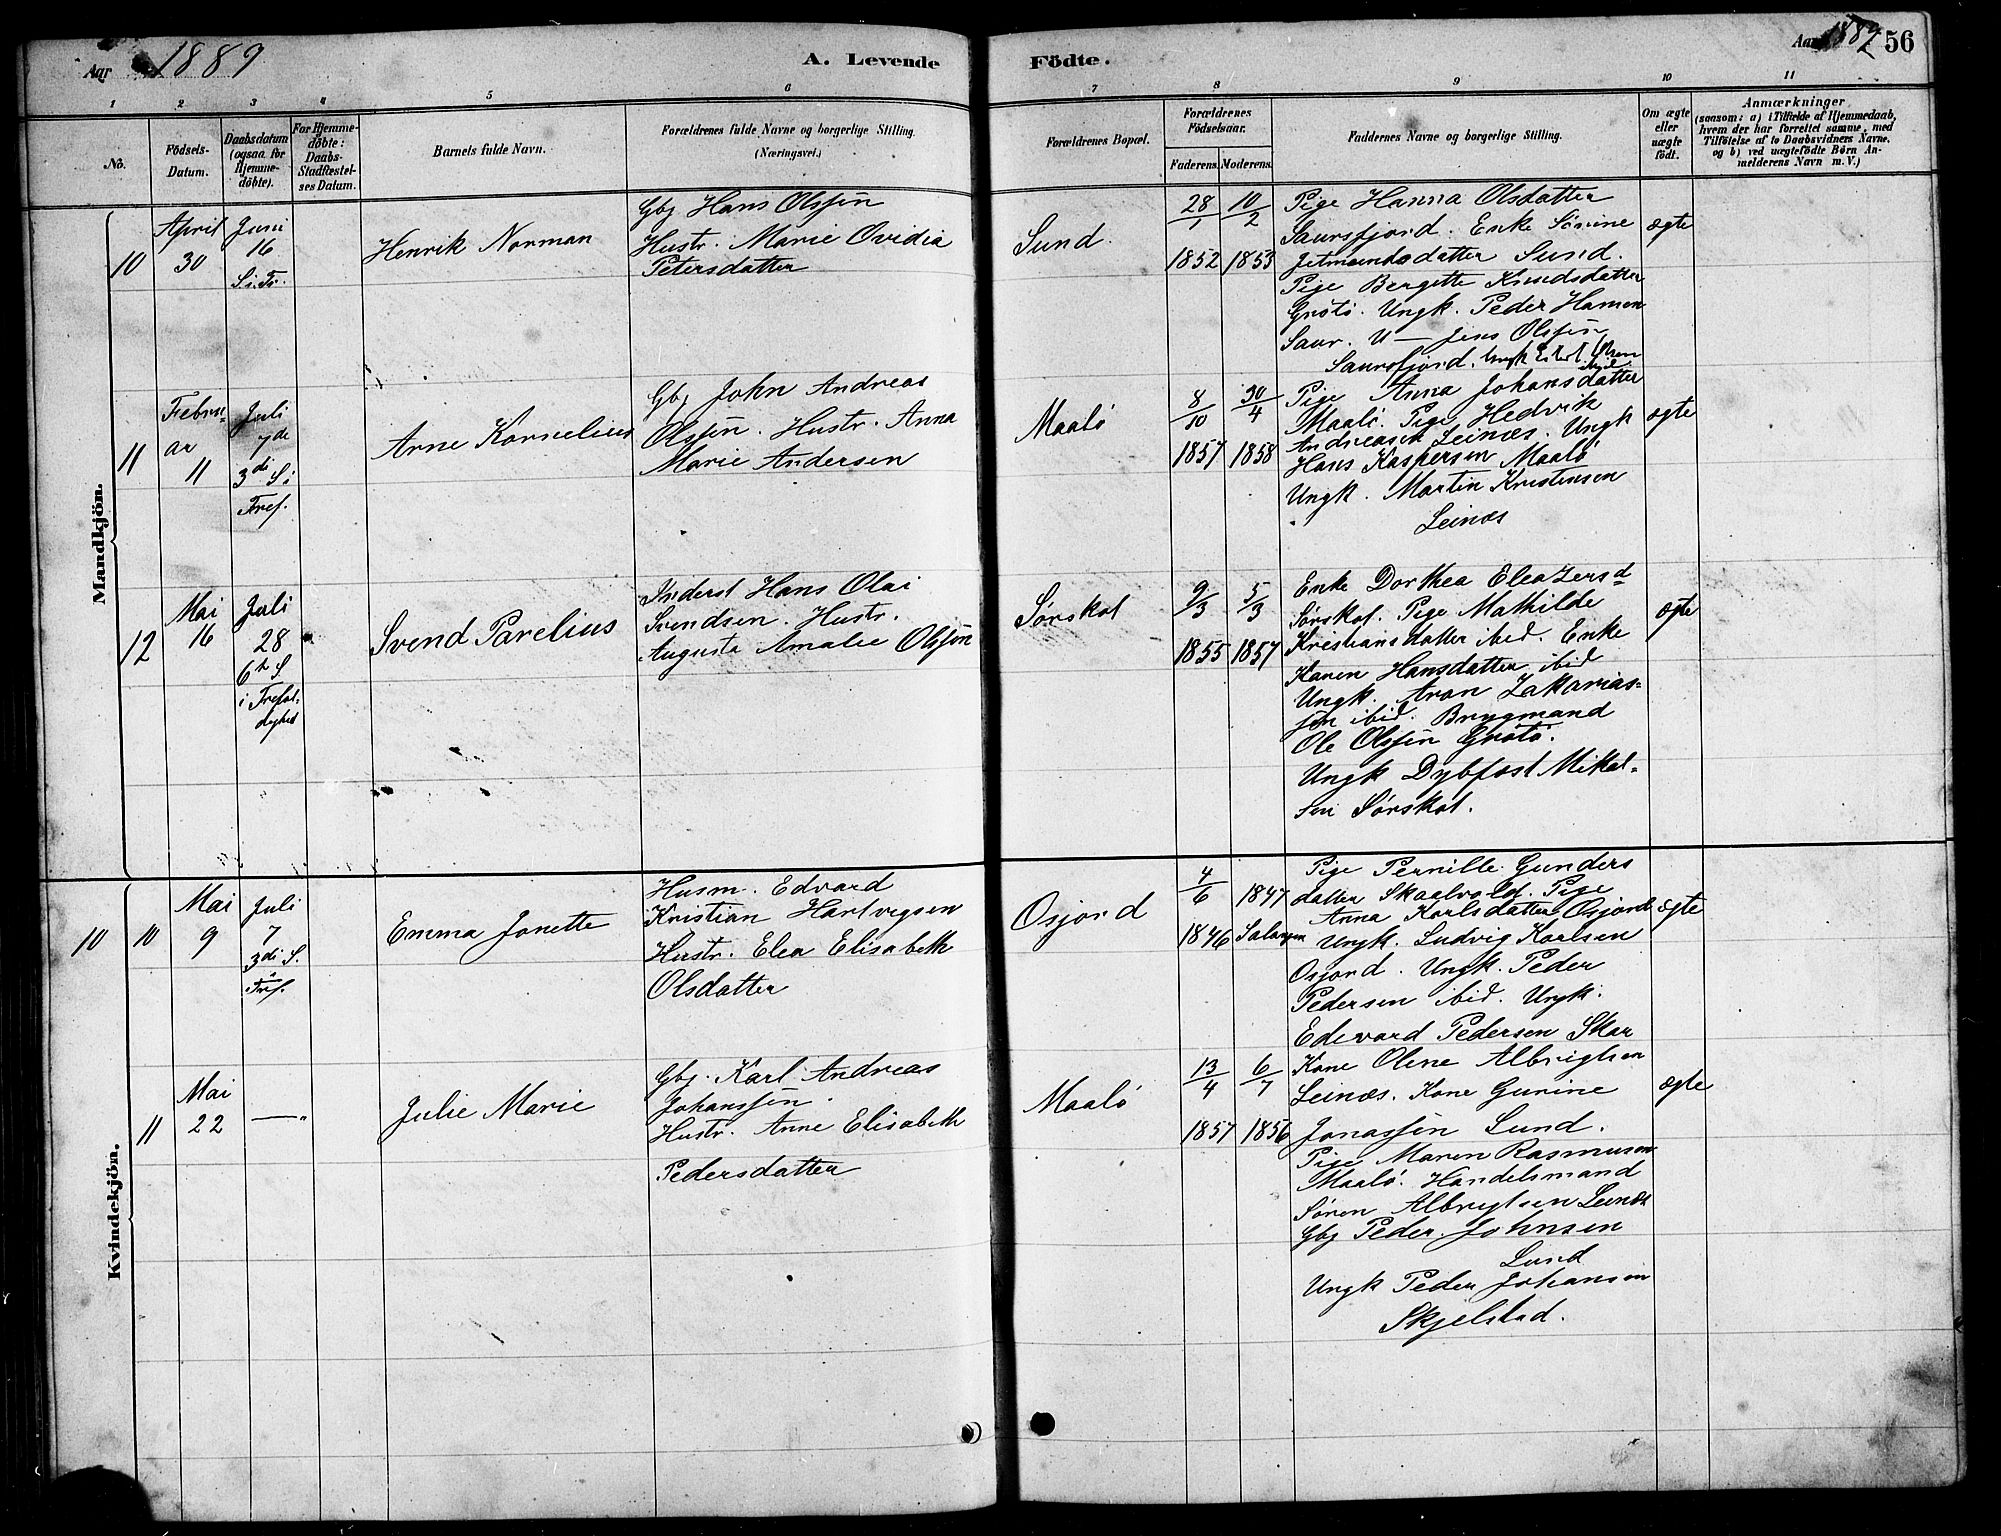 Aar 1889
A. Levende
Födte.
Aar 1889 56
1 2 3 4 5 6 7 8 9 10 11
No.
Födsels-
Datum.
Daabsdatum
(ogsaa for
Hjemme-
döbte).
For Hjemme-
döbte:
Daabs-
Stadfæstel-
ses Datum.
Barnets fulde Navn.
Forældrenes fulde Navne og borgerlige Stilling.
(Næringsvei.)
Forældrenes Bopæl.
Forældrenes
Födselsaar.
Faderens. Moderens.
Faddernes Navne og borgerlige Stilling.
Om ægte
eller
uægte
født.
Anmærkninger
(saasom: a) i Tilfælde af Hjemmedaab,
hvem der har forrettet samme, med
Tilföielse af to Daabsvidners Navne,
og b) ved uægtefödte Börn An-
melderens Navn m. V.)
Mandkjön.
10
April
30
Juni
16
S. i. Tr.
Henrik Norman
Gbj Hans Olssøn
Hustr. Marie Ovidia
Petersdatter
Sund.
28/1 10/2
1852 1853
Pige Hanna Olsdatter
Saursfjord. Enke Sørine
Jetmundsdatter Sund.
Pige Bergette Knudsdatter
Grøtø. Ungk. Peder Hansen
Saur. U— Jens Olssøn
Saursfjord. Ungk Olsen
ægte
11
Febru-
ar
11
Juli
7de
3di S i
Tref.
Arne Kornelius
Gbj John Andreas
Olssøn. Hustr. Anna
Marie Andersen
Maalø
8/10 30/4
1857 1858
Pige Anna Johansdatter
Maalø. Pige Hedvik
Andreasen Leines. Ungk
Hans Kaspersen Maalø
Ungk. Martin Kristensen
Leines
ægte
12
Mai
16
Juli
28
6te S.
i Trefol-
dighed
Svend Parelius
Inderst Hans Olai
Svendsen. Hustr.
Augusta Amalie Olssøn
Sørskot
9/3 5/3
1855 1857
Enke Dorthea Eleazersd
Sørskot. Pige Mathilde
Kristiansdatter ibid. Enke
Karen Hansdatter ibid
Ungk. Aron Zakarias-
sen ibid. Brygmand
Ole Olssøn Grøtø.
Ungk Dybfest Mikal-
sen Sørskot.
ægte
Kvindekjön.
10 10
Mai
9
Juli
7
3di S.
i Tref.
Emma Jonette
Husm. Edvard
Kristian Hartvigsen
Hustr. Elea Elisabeth
Olsdatter
Osjord
4/6 1847
1846 Salangen
Pige Pernille Gunders
datter Skaalvold. Pige
Anna Karlsdatter Osjord
Ungk. Ludvig Karlsen
Osjord. Ungk. Peder
Pedersen ibid. Ungk.
Edevard Pedersen Skar
ægte
11
Mai
22
— "
Julie Marie
Gbj. Karl Andreas
Johanssøn.
Hustr. Anne Elisabeth
Pedersdatter
Maalø
13/4 6/7
1857 1856
Kone Oline Albrigtsen
Leines. Kone Gurine
Jonassøn Lund.
Pige Maren Rasmusen
Maalø. Handelsmand
Søren Albrigtsen Leines
Gbj Peder Johnsen
Lund
Ungk Peder Johansen
Skjelstad.
ægte